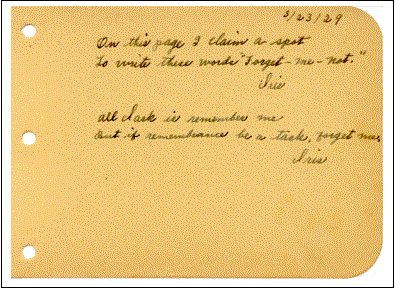 5/23/29
On this page I claim a spot
to write these words "Forget-me-not."
Iris
all I ask is remember me
But if remembrance be a task, forget me.
Iris